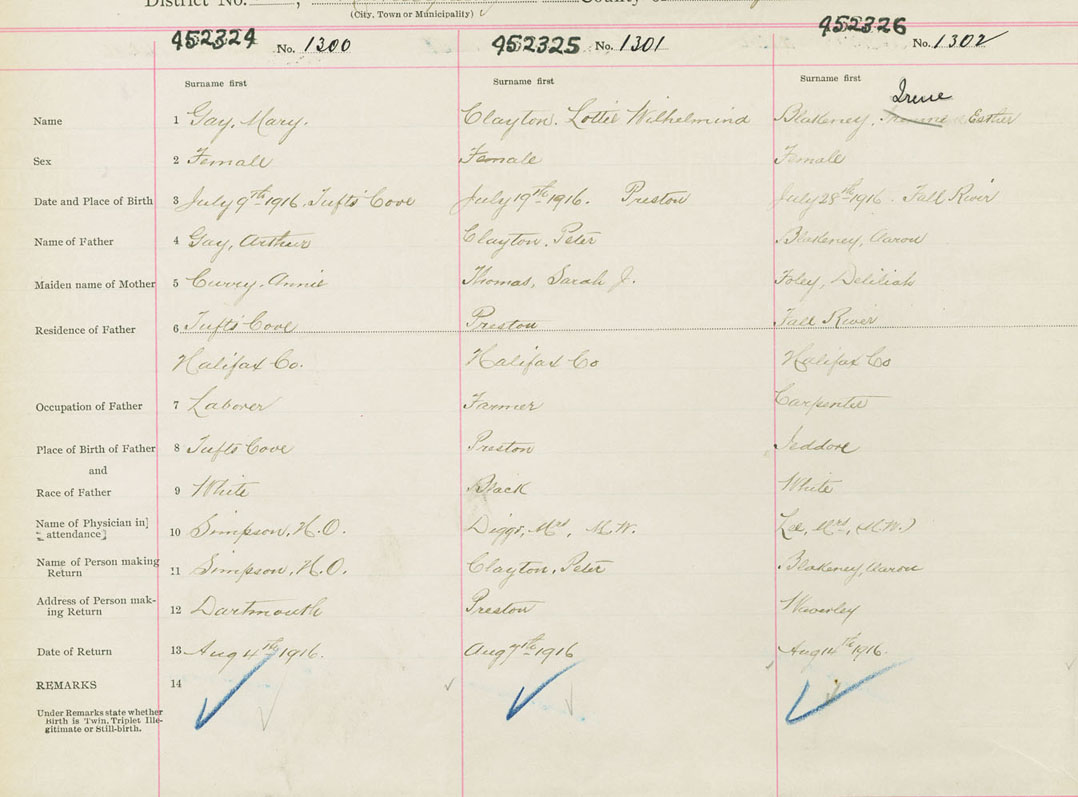 District No.____, County of
(City, Town or Municipality)
452324 No. 1300 452325 No. 1301 452326 No. 1302
Surname first Surname first Surname first
Irene
Name 1 Gay, Mary. Clayton. Lottie Wilhelmind Blakeney, Esther
Sex 2 Female Female Female
Date and Place of Birth 3 July 9th 1916. Tufts Cove July 19th 1916. Preston July 28th 1916. Fall River
Name of Father 4 Gay, Arthur Clayton, Peter Blakeney, Aaron
Maiden name of Mother 5 Curry, Annie Thomas, Sarah J. Foley, Deliliah
Residence of Father 6 Tufts Cove Preston Fall River
Halifax Co. Halifax Co Halifax Co
Occupation of Father 7 Laborer Farmer Carpenter
Place of Birth of Father 8 Tufts Cove Preston Jeddore
and
Race of Father 9 White Black White
Name of Physician in]
[attendance] 10 Simpson, H.O. Diggs, Mrs, M.W. Lee, Mrs, (M.W.)
Name of Person making
Return 11 Simpson, H.O. Clayton, Peter Blakeney, Aaron
Address of Person mak-
ing Return 12 Dartmouth Preston Waverley
Date of Return 13 Aug 4th 1916. Aug 7th 1916 Aug 14th 1916.
REMARKS 14
Under Remarks state whether
Birth is Twin, Triplet Ille-
gitimate or Still-birth.